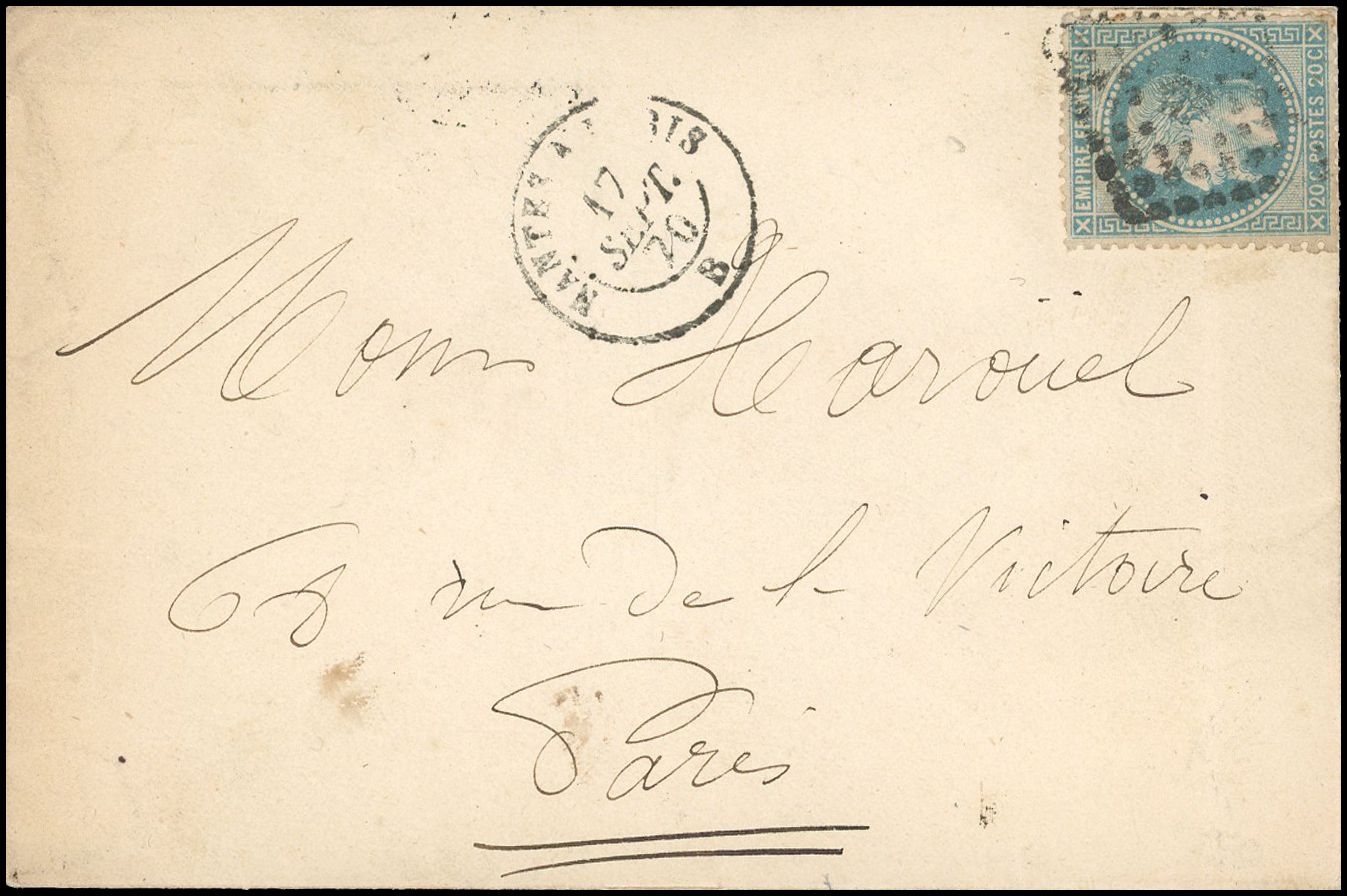 EMPIRE FRANÇAIS
20 C POSTES 20 C
NANTES A PARIS
17
SEPT.
70
B
Mons Haroüel
68 rue de la Victoire
Paris